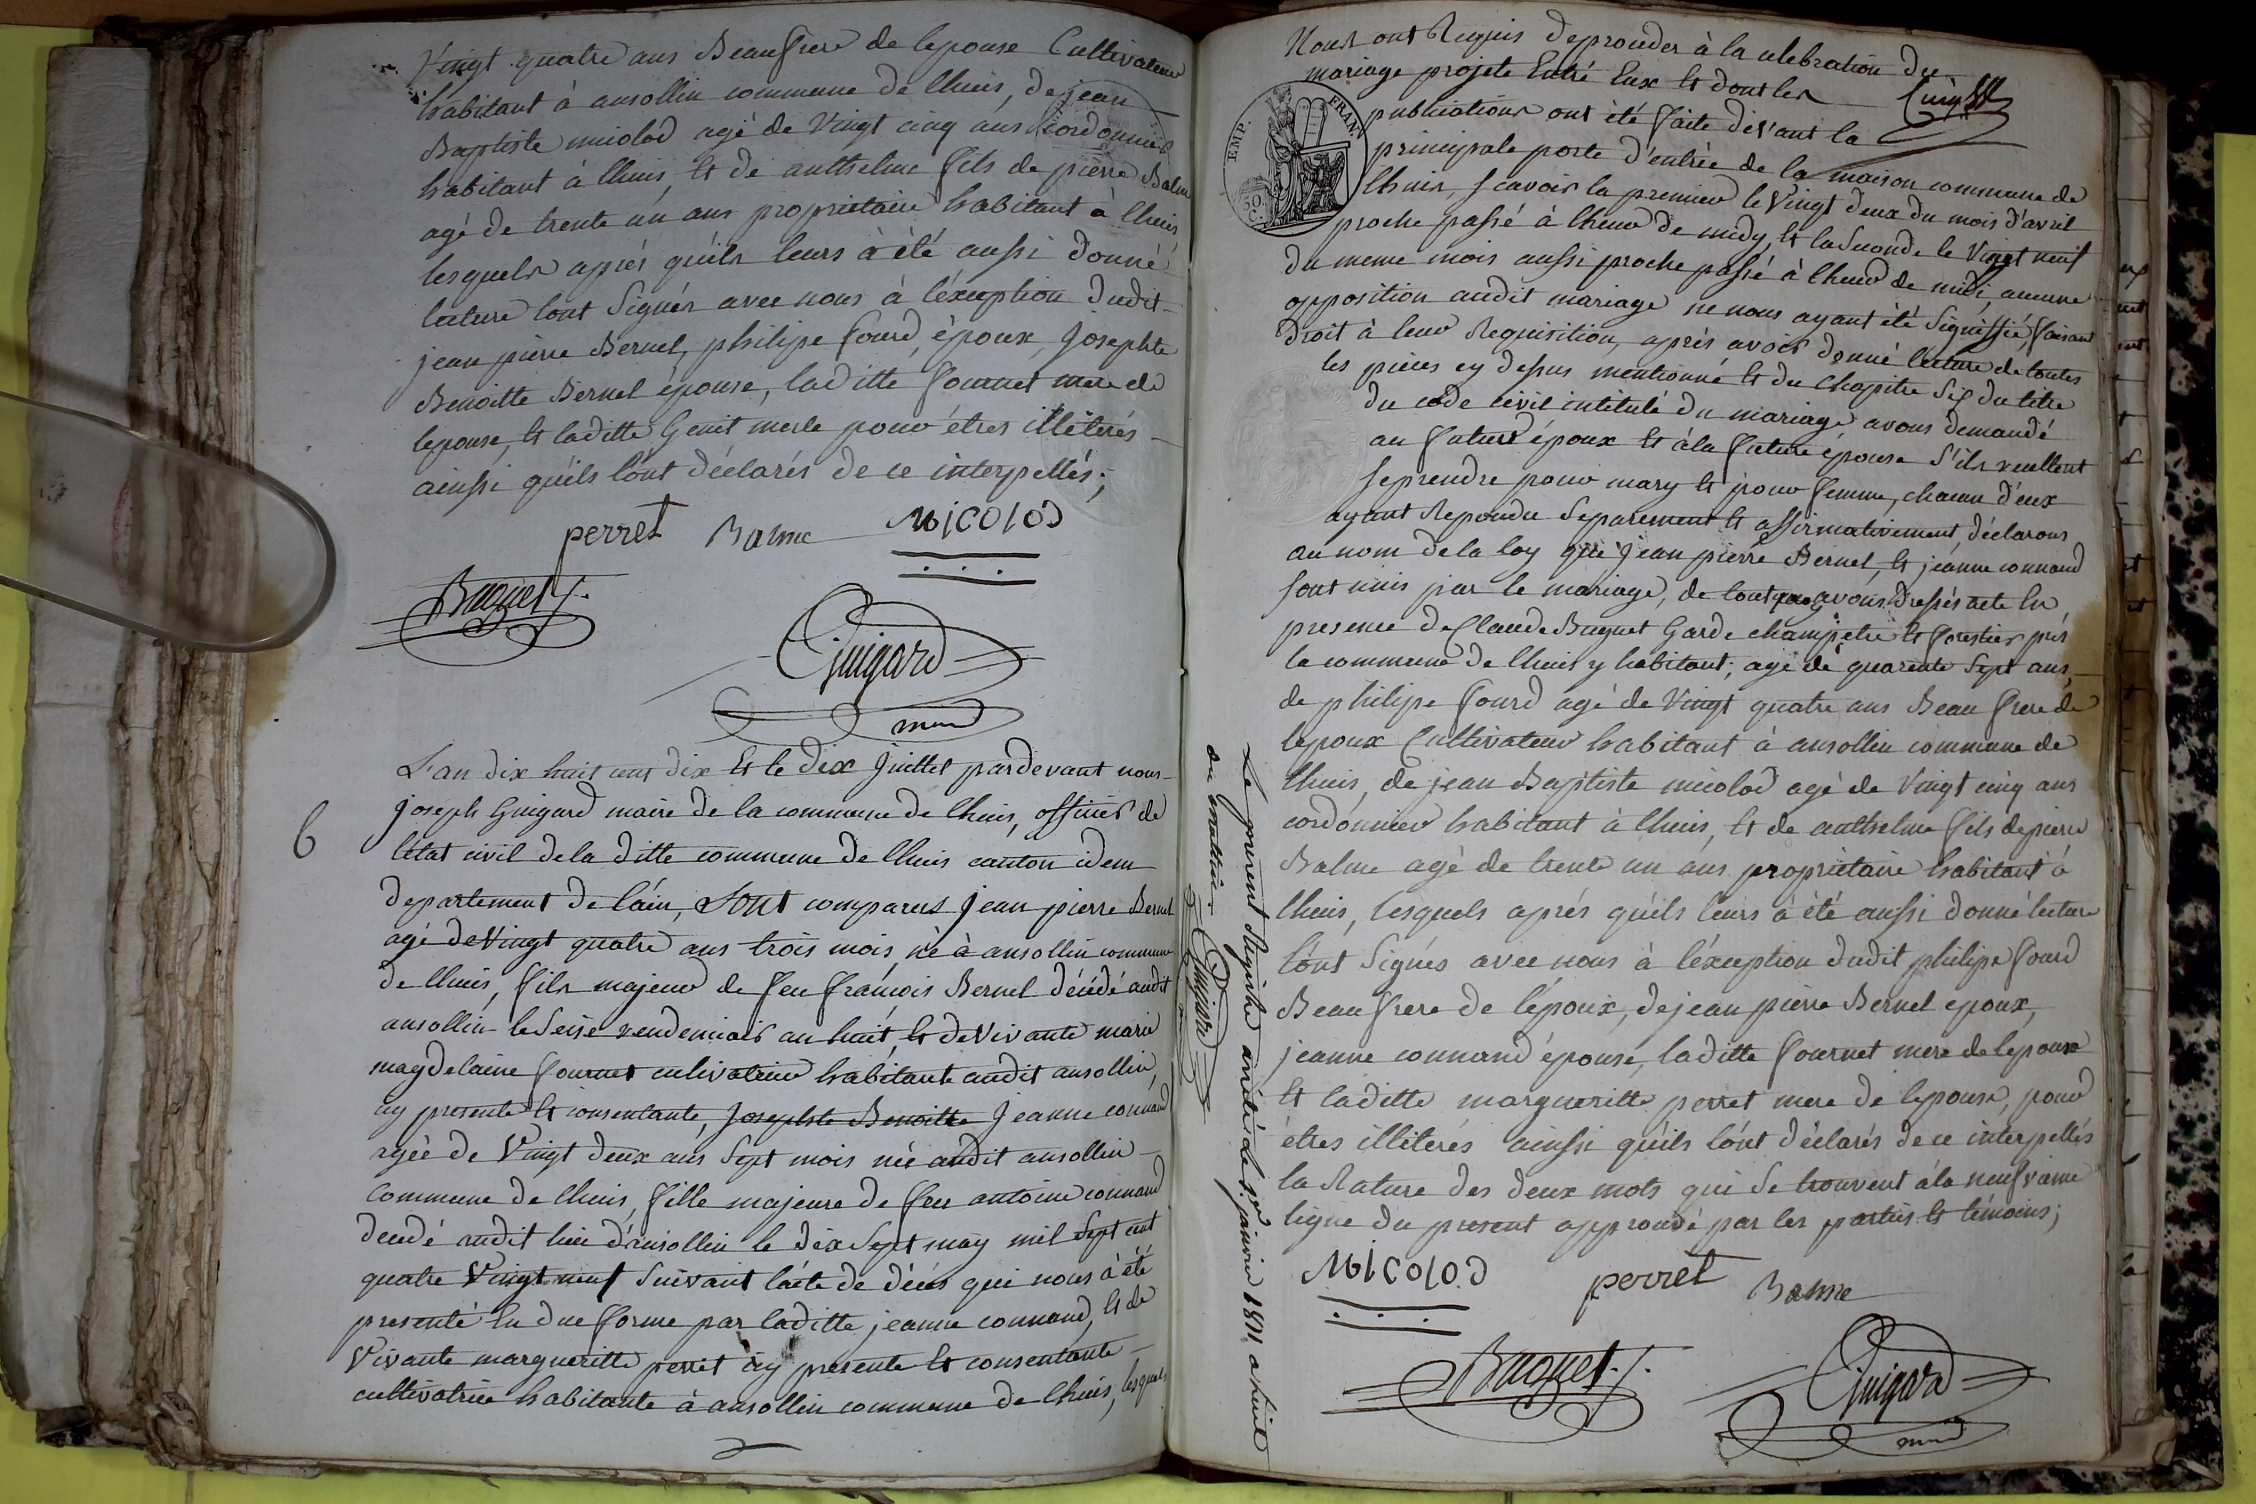 Vingt quatre ans Beaufrere de lepouse Cultivateur
habitant à ansollin commune de lhuis, de jean
Baptiste micolod agé de Vingt cinq ans Cordonnier
habitant à lhuis, et de anthelme fils de pierre Balme
agé de trente un ans proprietaire habitant à lhuis
lesquels aprés qu'ils leurs à été aussi donné
lecture tont Signés avec nous à léxception dudit
jean pierre Bernel, philipe fourd, époux, Josephte
Benoitte Bernel épouse, laditte fournet mere de
lepouse, et laditte Genit merle pour étres illétérés
ainsi qu'ils lónt déclarés de ce interpellés;
perret Balme MICOlOD
Buguet
Guigard
maire
6
L'an dix huit cent dix Et le dix Juillet pardevant nous
joseph Guigard maire de la commune de lhuis, officier de
létat civil de la ditte commune de lhuis canton idem
departement de láin, Sont comparus jean pierre Bernel
agé de Vingt quatre ans trois mois, né à ansollin commune
de lhuis, fils majeur de feu francois Bernel décédé audit
ansollin le Seise vendemiair an huit, et de Vivante marie
magdelaine fournet cultivatrice habitante audit ansollin,
cy presente et consentante, Josephte Benoitte Jeanne connand
agée de Vingt deux ans Sept mois née audit ansollin
Commune de lhuis, fille majeure de feu antoine connand
decedé audit lieu d'ansollin le dix Sept may mil Sept cent
quatre Vingt neuf Suivant lácte de décés qui nous à été
presenté En due forme par laditte jeanne connand, et de
Vivante margueritte perret cy presente et consentante
cultivatrice habitante à ansollin commune de lhuis, lesquels
Nous ont Requis de proceder à la celebration du
mariage projeté Entré Eux et dont les
publications ont été faite devant la
principale porte d'entrée de la maison commune de
lhuis, Scavoir la premiere le Vingt deux du mois d'avril
proche passé à lheur de midy, et la Seconde le Vingt neuf
du meme mois aussi proche passé à lheur de midi, aucune
opposition audit mariage ne nous ayant été Signiffié, faisant
droit à leur Requisition, aprés avoir donné lecture de toutes
les piéces cy dessus mentionné et du Chapitre Six du titre
du code civil intitulé du mariage avons demandé
au futur époux et à la future épouse S'ils veullent
Se prendre pour mary et pour femme, chacun d'eux
ayant Repondu Séparement et affirmativement, déclarons
au nom de la loy que Jean pierre Bernel, et jéanne connand
Sont unis par le mariage, de tout quoy avons dressés acte En
presence de Claude Buguet Garde champetre et forestier prés
la commune de lhuis y habitant, agé de quarente Sept ans,
de philipe fourd agé de Vingt quatre ans Beau frere de
lepoux Cultivateur habitant à ansollin commune de
lhuis, de jean Baptiste micolod agé de Vingt cinq ans
cordónnier habitant à lhuis, et de anthelme fils de pierre
Balme agé de trente un ans proprietaire habitant à
lhuis, lesquels aprés qu'ils leurs à été aussi donné lecture
tont Signés avec nous à léxception dudit philipe fourd
Beau frere de lépoux, de jean pierre Bernel epoux,
jeanne connand épouse, laditte fournet mere de lepoux
et laditte margueritte perret mere de lepouse, pour
étres illétérés ainssi qu'ils lónt déclarés de ce intérpellés
la Rature des deux mots qui Se trouvent à la neufvieme
ligne du present approuvé par les parties et témoins;
MICOlOD perret Balme
Buguet
Guigard
maire
EMP. FRAN.
50 C.
Le present Registre arrété le 1er janvier 1811
Guigard